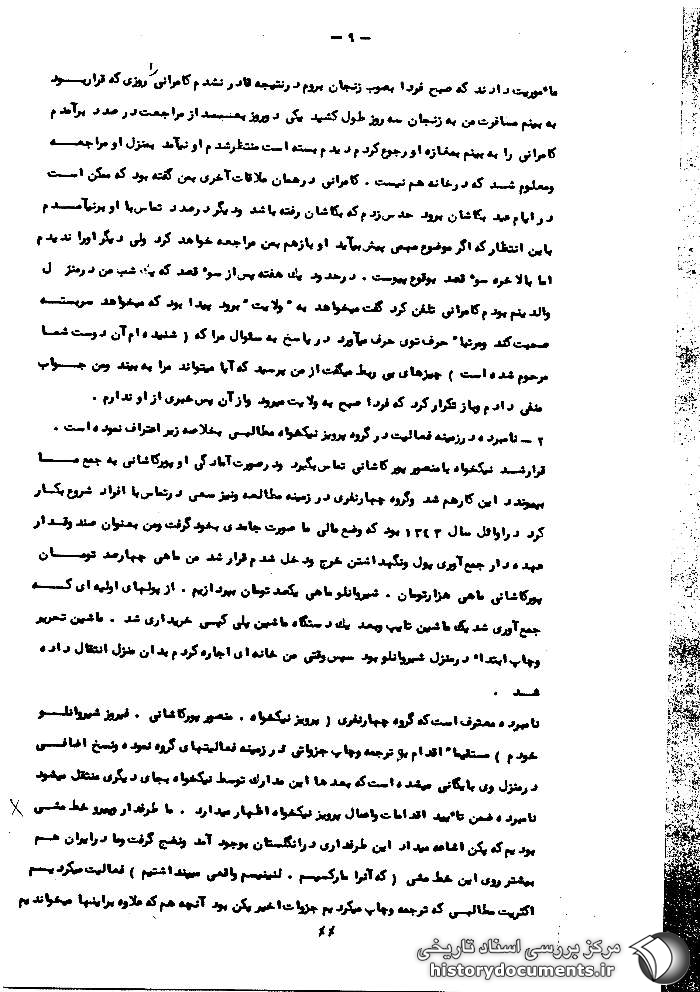 — ۹ —
مأموریت دارند که صبح فردا بصوب زنجان بروم درنتیجه قادر نشدم کامرانی را روزی که قرار بود
به بینم مسافرت من به زنجان سه روز طول کشید یکی دوروز بعد از مراجعت در صدد برآمدم
کامرانی را به بینم بمغازه او رجوع کردم دیدم بسته است منتظر شدم او نیآمد بمنزل او مراجعه
ومعلوم شد که درخانه هم نیست . کامرانی درهمان ملاقات آخری بمن گفته بود که ممکن است
در ایام عید بکاشان برود حدس زدم که بکاشان رفته باشد ودیگر درصدد تماس با او برنیآمدم
باین انتظار که اگر موضوع مهمی پیش بیآید او بازهم بمن مراجعه خواهد کرد ولی دیگر اورا ندیدم
اما بالاخره سوء قصد بوقوع پیوست . درحدود یک هفته پس از سوء قصد که یک شب من در منزل
والدینم بودم کامرانی تلفن کرد گفت میخواهد به "ولایت" برود پیدا بود که میخواهد سربسته
صحبت کند ومرتباً حرف توی حرف میآورد در پاسخ به سئوال مرا که ( شنیده ام آن دوست شما
مرحوم شده است ) چیزهای بی ربط میگفت از من پرسید که آیا میتواند مرا به بیند ومن جواب
منفی دادم وباز تکرار کرد که فردا صبح به ولایت میرود واز آن پس خبری از او ندارم .
۲ — نامبرده درزمینه فعالیت در گروه پرویز نیکخواه مطالبی بخلاصه زیر اعتراف نموده است .
قرار شد نیکخواه با منصور پور کاشانی تماس بگیرد ودرصورت آمادگی او پورکاشانی به جمع ما
بپیوندد این کار هم شد وگروه چهارنفری در زمینه مطالعه ونیز سعی درتماس با افراد شروع بکار
کرد در اوائل سال ۱۳۴۳ بود که وضع مالی ما صورت جامدی بخود گرفت ومن بعنوان صندوقدار
عهده دار جمع آوری پول ونگهداشتن خرج ودخل شدم قرار شد من ماهی چهارصد تومان
پورکاشانی ماهی هزارتومان . شیروانلو ماهی یکصد تومان بپردازیم . از پولهای اولیه ای که
جمع آوری شد یک ماشین تایپ وبعد یک دستگاه ماشین پلی کپی خریداری شد . ماشین تحریر
وچاپ ابتداء درمنزل شیروانلو بود سپس وقتی من خانه ای اجاره کردم بدان منزل انتقال داده
شد .
نامبرده معترف است که گروه چهارنفری ( پرویز نیکخواه . منصور پورکاشانی . فیروز شیروانلو
خودم ) مستقیماً اقدام به ترجمه وچاپ جزواتی در زمینه فعالیتهای گروه نموده ونسخ اضافی
درمنزل وی بایگانی میشده است که بعدها این مدارک توسط نیکخواه بجای دیگری منتقل میشود
نامبرده ضمن تأیید اقدامات واعمال پرویز نیکخواه اظهار میدارد . ما طرفدار وپیرو خط مشی
بودیم که پکن اشاعه میداد این طرفداری درانگلستان بوجود آمد ونضج گرفت وما درایران هم
بیشتر روی این خط مشی ( که آنرا مارکسیسم . لنینیسم واقعی میپنداشتیم ) فعالیت میکردیم
اکثریت مطالبی که ترجمه وچاپ میکردیم جزوات اخیر پکن بود آنچه هم که علاوه براینها میخواندیم
مرکز بررسی اسناد تاریخی
historydocuments.ir